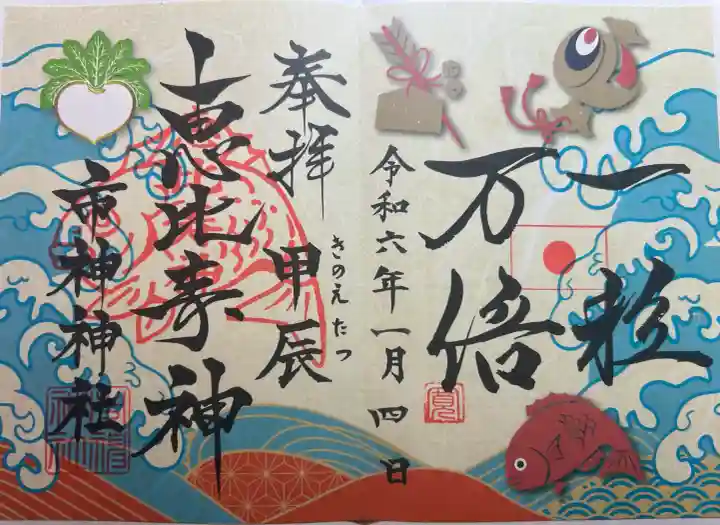 一粒
万倍
令和六年一月四日
奉拝 甲辰
きのえ たつ
恵比寿神
市神神社